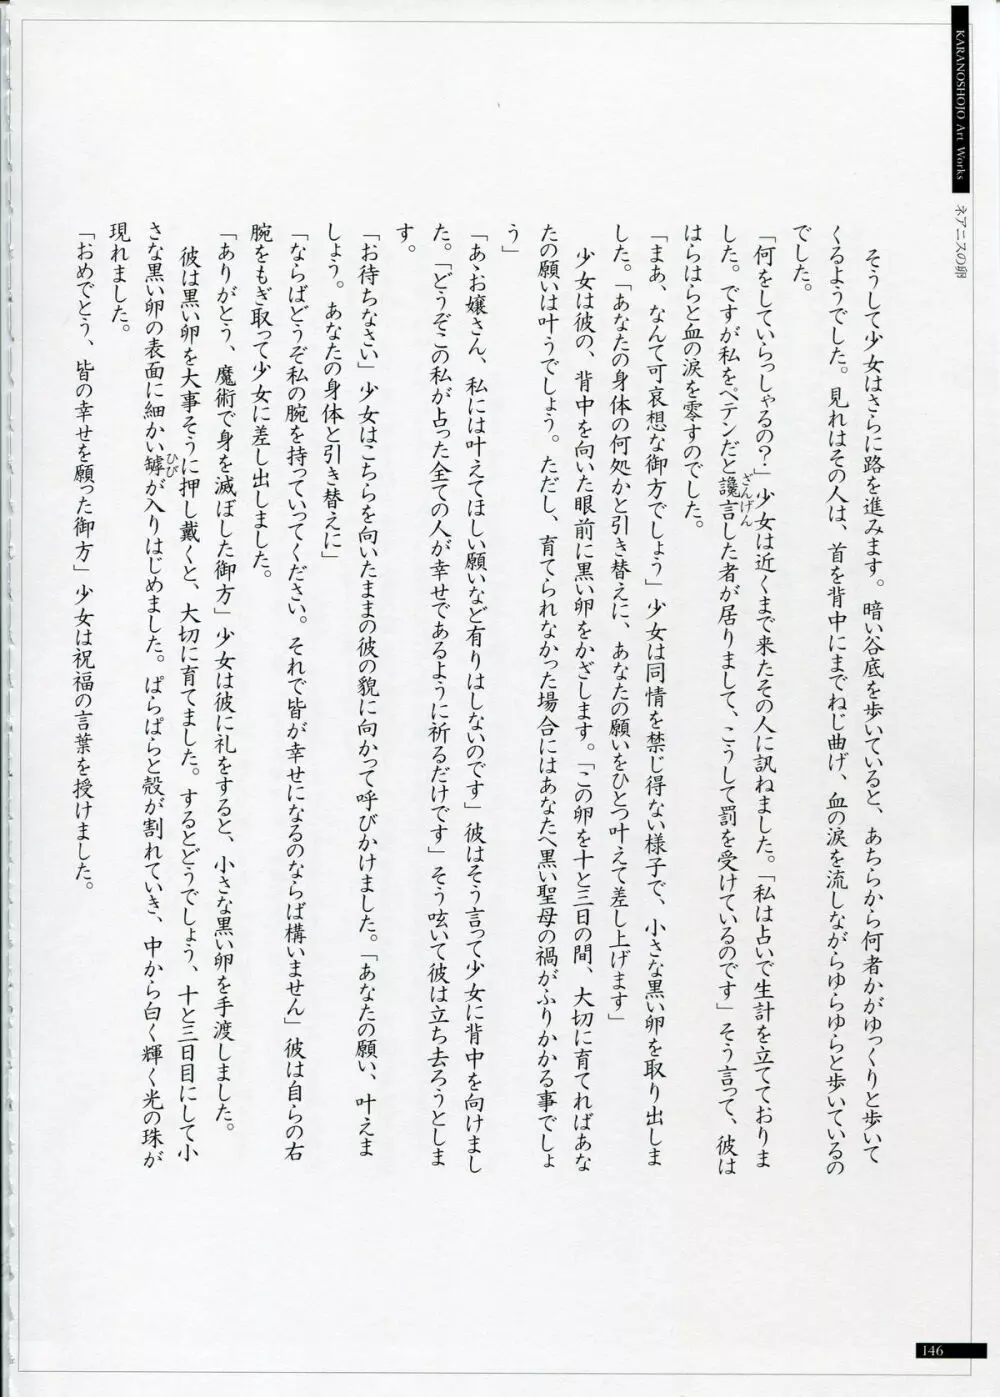 KARANOSHOJO Art Works
ネアニスの卵
　そうして少女はさらに路を進みます。暗い谷底を歩いていると、あちらから何者かがゆっくりと歩いて
くるようでした。見ればその人は、首を背中にまでねじ曲げ、血の涙を流しながらゆらゆらと歩いているの
でした。
「何をしていらっしゃるの？」少女は近くまで来たその人に訊ねました。「私は占いで生計を立てておりま
した。ですが私をペテンだと讒言した者が居りまして、こうして罰を受けているのです」そう言って、彼は
ざんげん
はらはらと血の涙を零すのでした。
「まあ、なんて可哀想な御方でしょう」少女は同情を禁じ得ない様子で、小さな黒い卵を取り出しま
した。「あなたの身体の何処かと引き替えに、あなたの願いをひとつ叶えて差し上げます」
　少女は彼の、背中を向いた眼前に黒い卵をかざします。「この卵を十と三日の間、大切に育てればあな
たの願いは叶うでしょう。ただし、育てられなかった場合にはあなたへ黒い聖母の禍がふりかかる事でしょ
う」
「あゝお嬢さん、私には叶えてほしい願いなど有りはしないのです」彼はそう言って少女に背中を向けまし
た。「どうぞこの私が占った全ての人が幸せであるように祈るだけです」そう呟いて彼は立ち去ろうとしま
す。
「お待ちなさい」少女はこちらを向いたままの彼の貌に向かって呼びかけました。「あなたの願い、叶えま
しょう。あなたの身体と引き替えに」
「ならばどうぞ私の腕を持っていってください。それで皆が幸せになるのならば構いません」彼は自らの右
腕をもぎ取って少女に差し出しました。
「ありがとう、魔術で身を滅ぼした御方」少女は彼に礼をすると、小さな黒い卵を手渡しました。
　彼は黒い卵を大事そうに押し戴くと、大切に育てました。するとどうでしょう、十と三日目にして小
さな黒い卵の表面に細かい罅が入りはじめました。ぱらぱらと殻が割れていき、中から白く輝く光の珠が
ひび
現れました。
「おめでとう、皆の幸せを願った御方」少女は祝福の言葉を授けました。
146